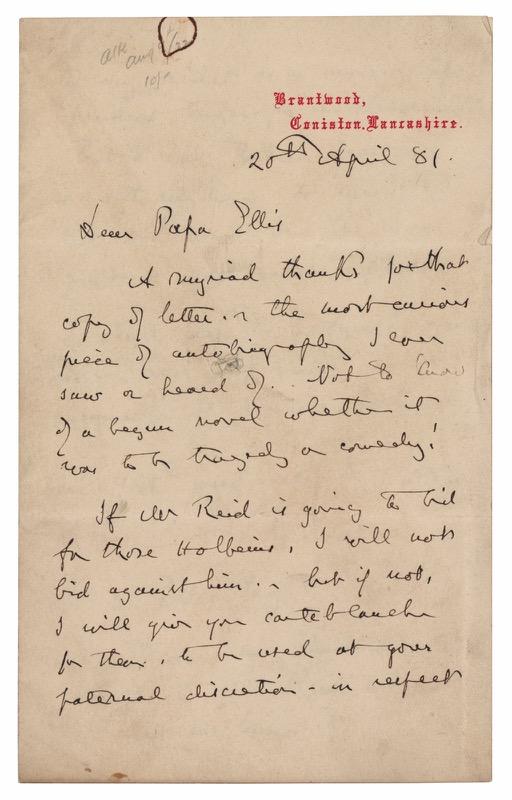 Brantwood,
Coniston, Lancashire.
20th April 81.
Dear Papa Ellis
A myriad thanks for that
copy of letter. & the most curious
piece of autobiography I ever
saw or heard of. Not to know
of a begun novel whether it
was to be tragedy or comedy!
If Mr Reid is going to bid
for those Holbeins, I will not
bid against him. & but if not,
I will give you carte blanche
for them, to be used at your
paternal discretion - in respect